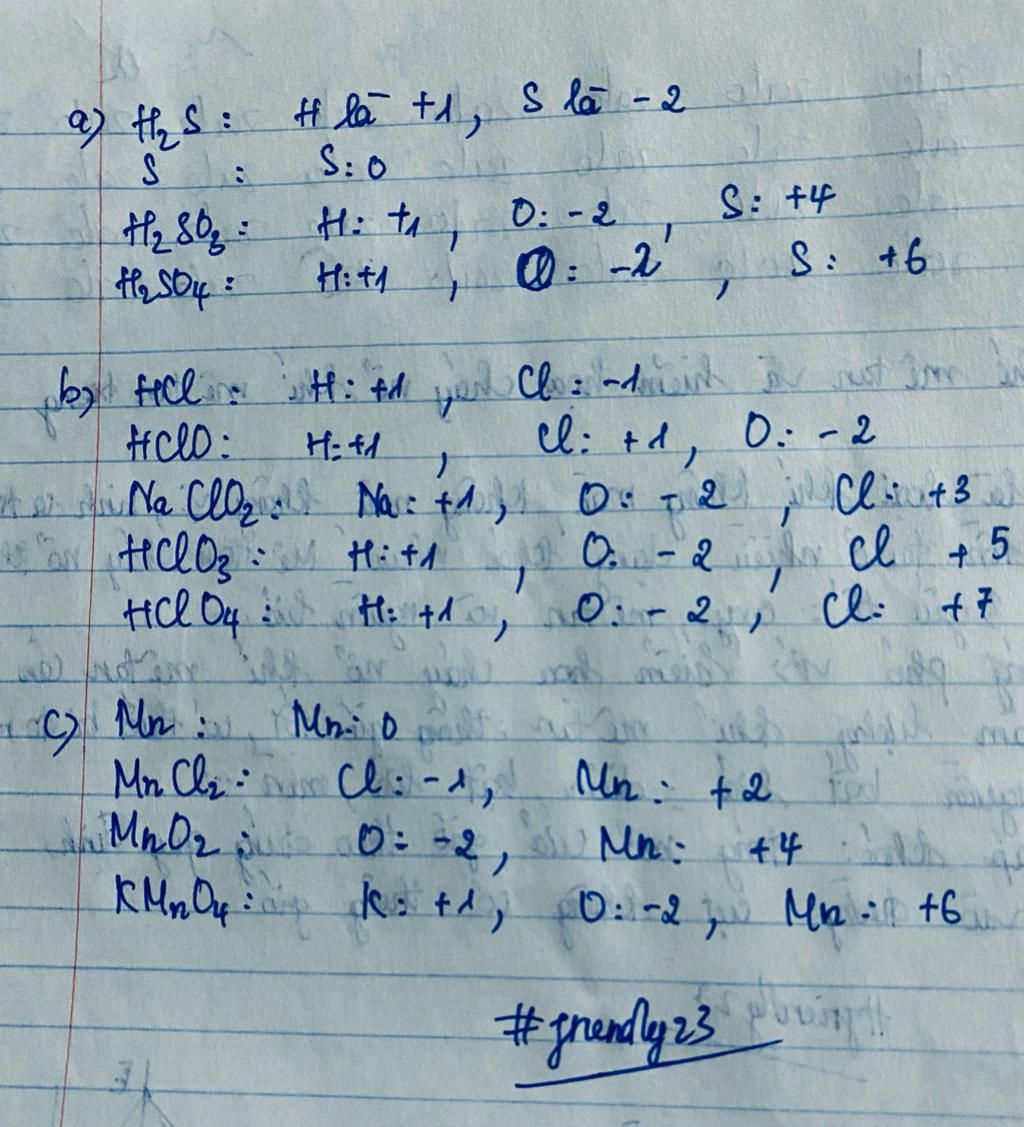 a) H₂S : H là +1, S là -2
S : S: 0
H₂SO₃ : H: +1, O: -2, S: +4
H₂SO₄ : H: +1, O: -2, S: +6
b) HCl : H: +1, Cl: -1
HClO: H: +1, Cl: +1, O: -2
NaClO₂: Na: +1, O: -2, Cl: +3
HClO₃ : H: +1, O: -2, Cl +5
HClO₄ : H: +1, O: -2, Cl: +7
c) Mn : Mn: 0
MnCl₂: Cl: -1, Mn: +2
MnO₂ : O: -2, Mn: +4
KMnO₄: K: +1, O: -2, Mn: +6
#friendly23